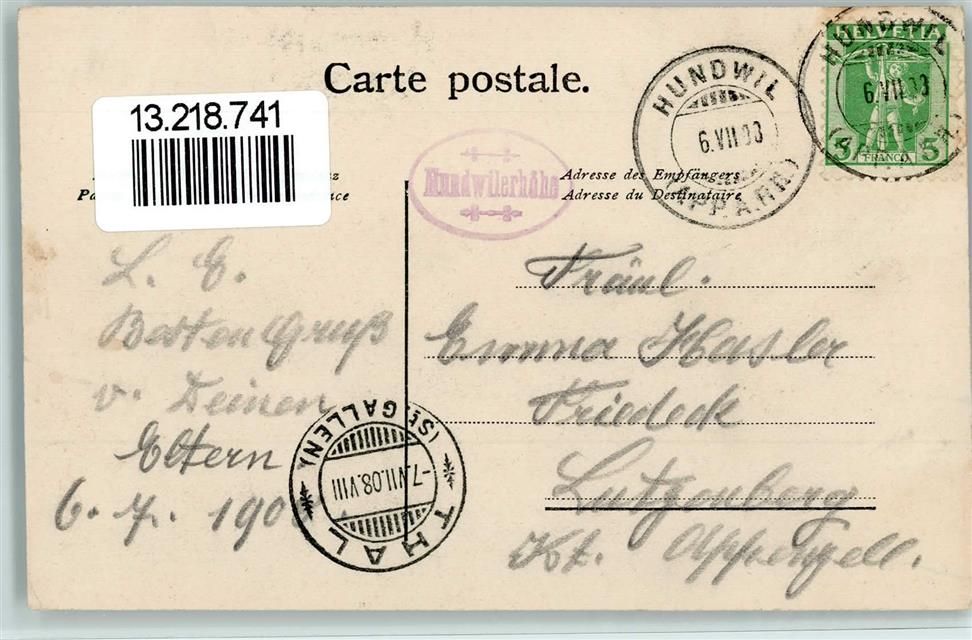 Carte postale.
13.218.741
HUNDWIL
6.VII.08
(APP.A.RH)
HUNDWIL
6.VII.08
HELVETIA
5 FRANCO 5
Hundwilerhöhe
Adresse des Empfängers
Adresse du Destinataire
L. E.
Besten Gruß
v. Deinen
Eltern
6. 7. 190
THAL
(ST. GALLEN)
-7.VII.08.VIII
Fräul.
Emma Hasler
Friedeck
Lutzenberg
Kt. Appenzell.